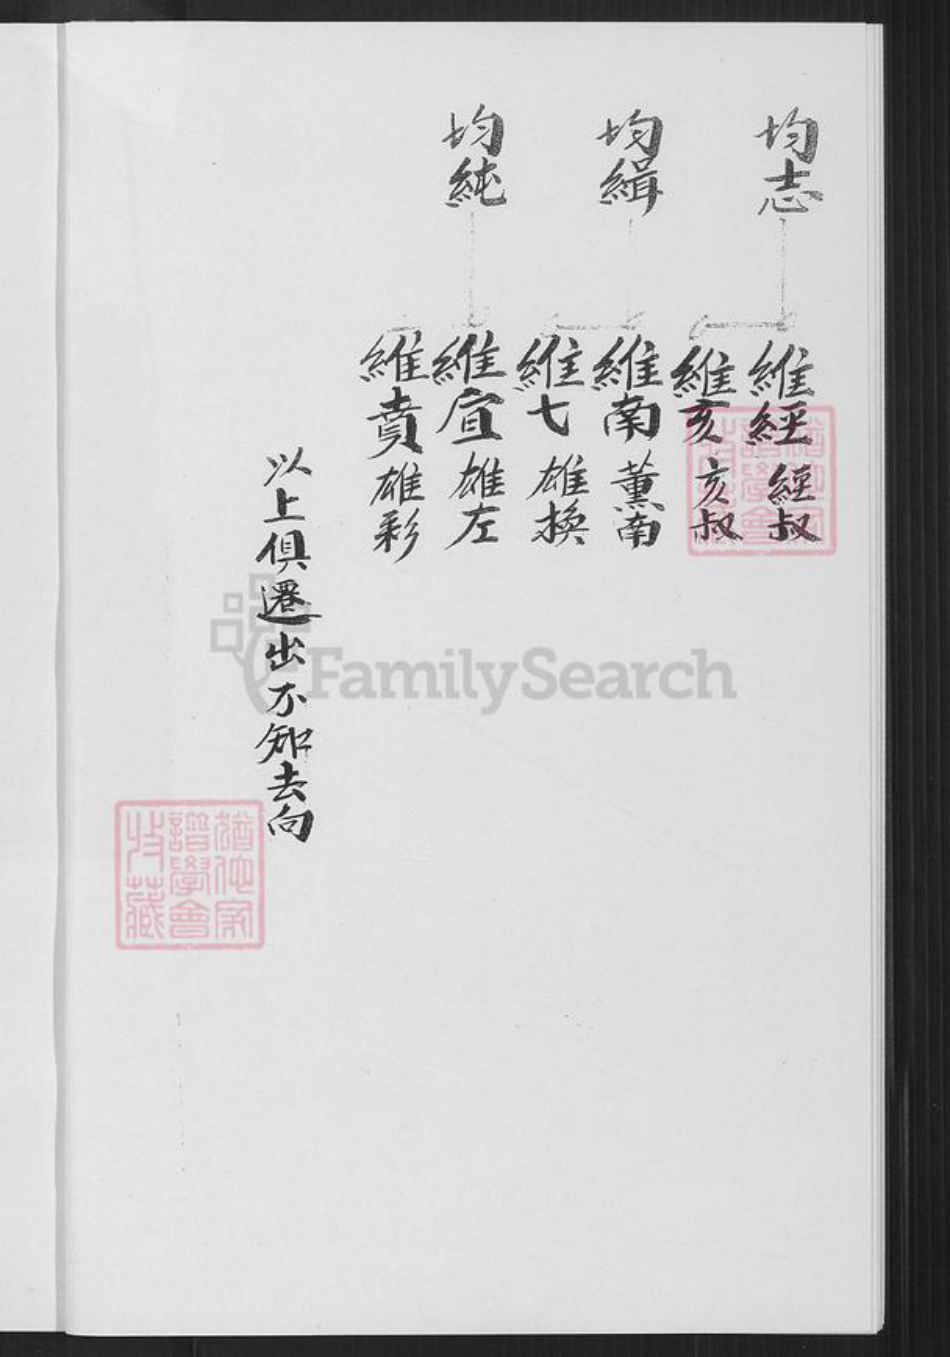 均志
均緝
均純
維經 經叔
維亥 亥叔
維南 薰南
維七 雄換
維宜 雄左
維賁 雄彩
以上俱遷出不知去向
譜學會
收藏
FamilySearch